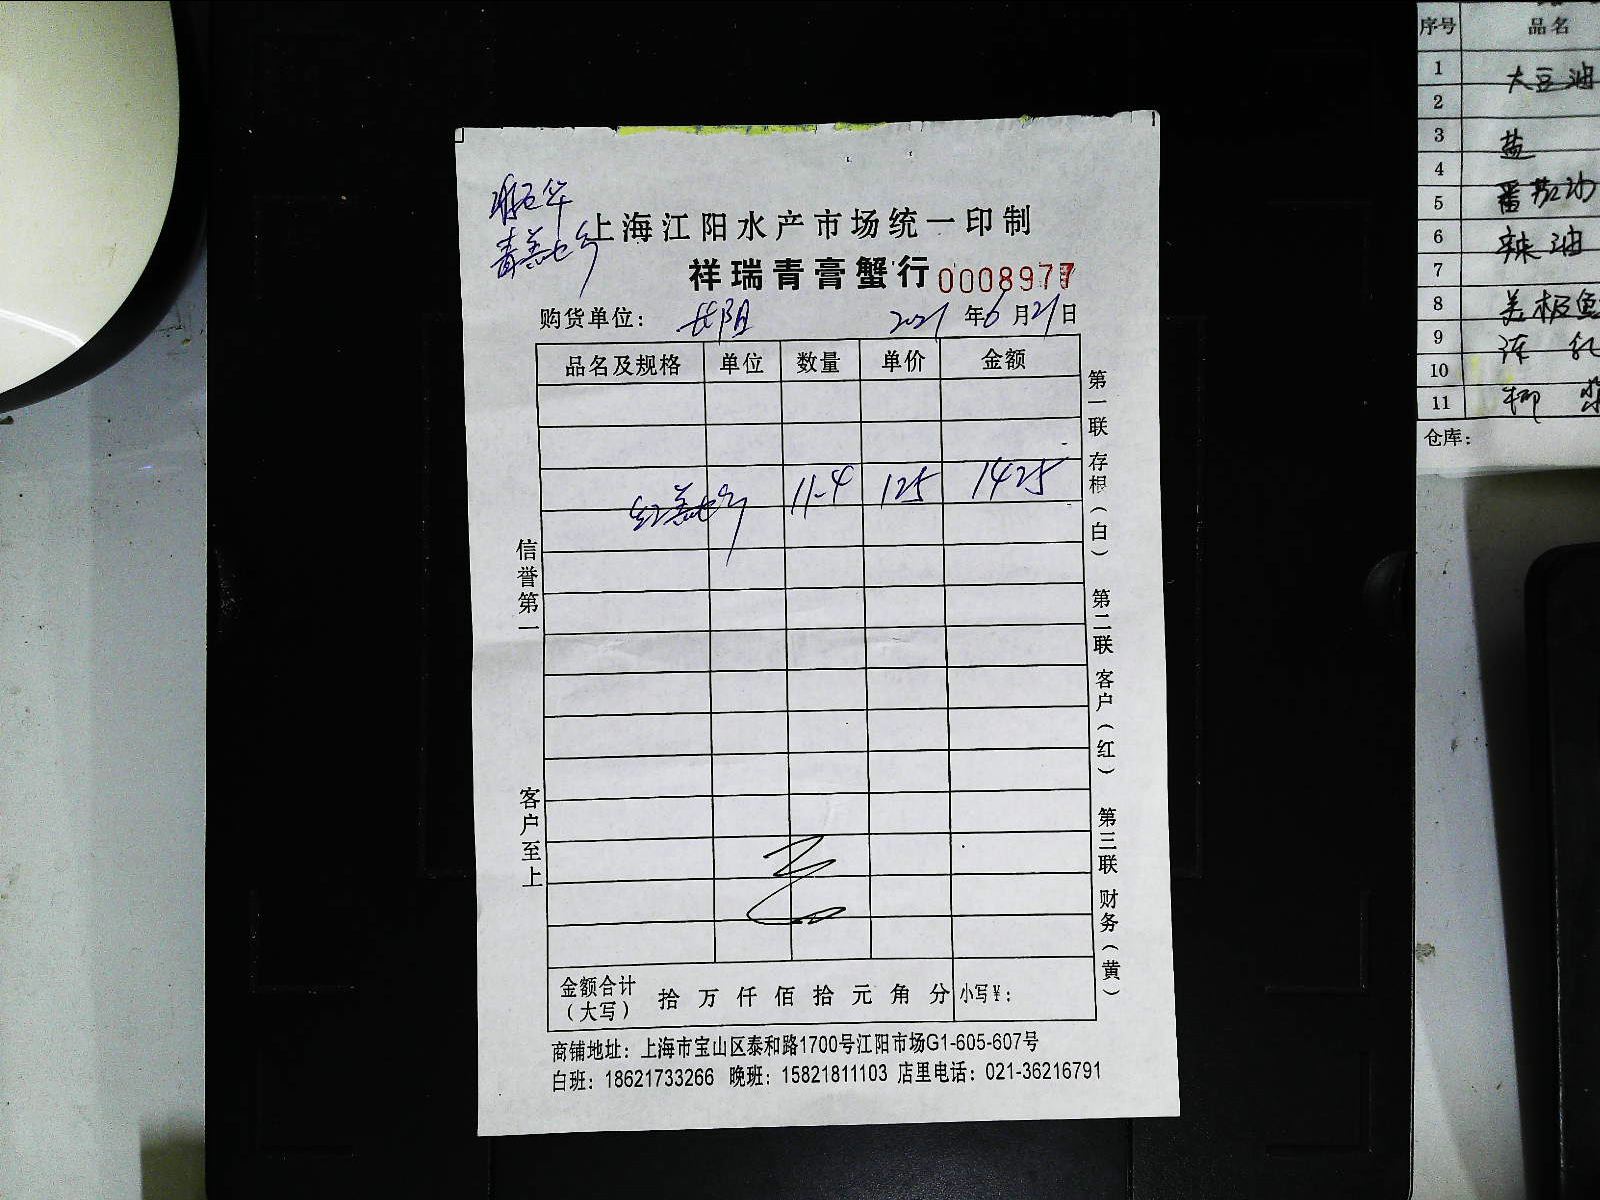 上海江阳水产市场统一印制
祥瑞青膏蟹行 0008977
购货单位: 长阳 2021年6月21日
品名及规格 单位 数量 单价 金额
11.4 125 1425
信誉第一
客户至上
第一联 存根(白) 第二联 客户(红) 第三联 财务(黄)
金额合计(大写) 拾 万 仟 佰 拾 元 角 分 小写¥:
商铺地址: 上海市宝山区泰和路1700号江阳市场G1-605-607号
白班: 18621733266 晚班: 15821811103 店里电话: 021-36216791
序号 品名
1 大豆油
2
3 盐
4
5
6 辣油
7
8
9
10
11
仓库: